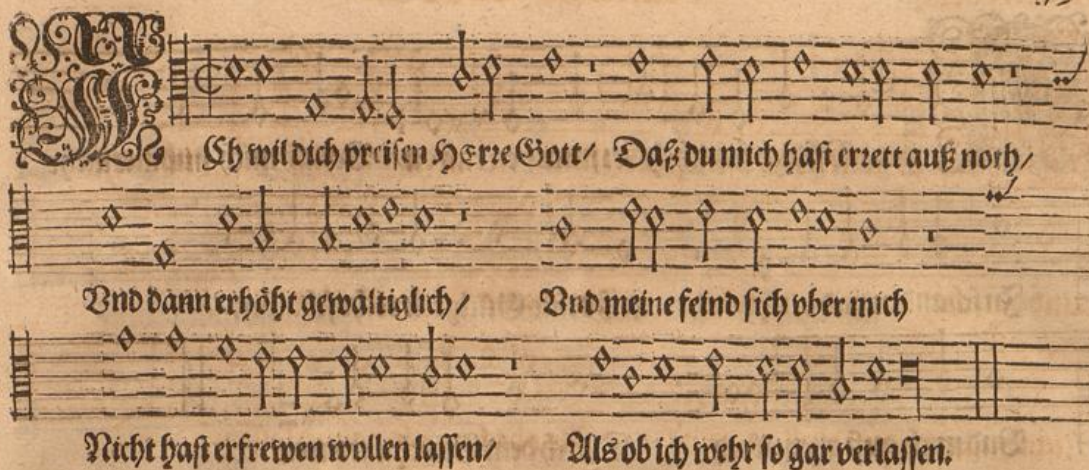 ICh wil dich preisen HErre Gott/ Daß du mich hast errett auß noth/
Vnd dann erhöht gewaltiglich/ Vnd meine feind sich vber mich
Nicht hast erfrewen wollen lassen/ Als ob ich wehr so gar verlassen.